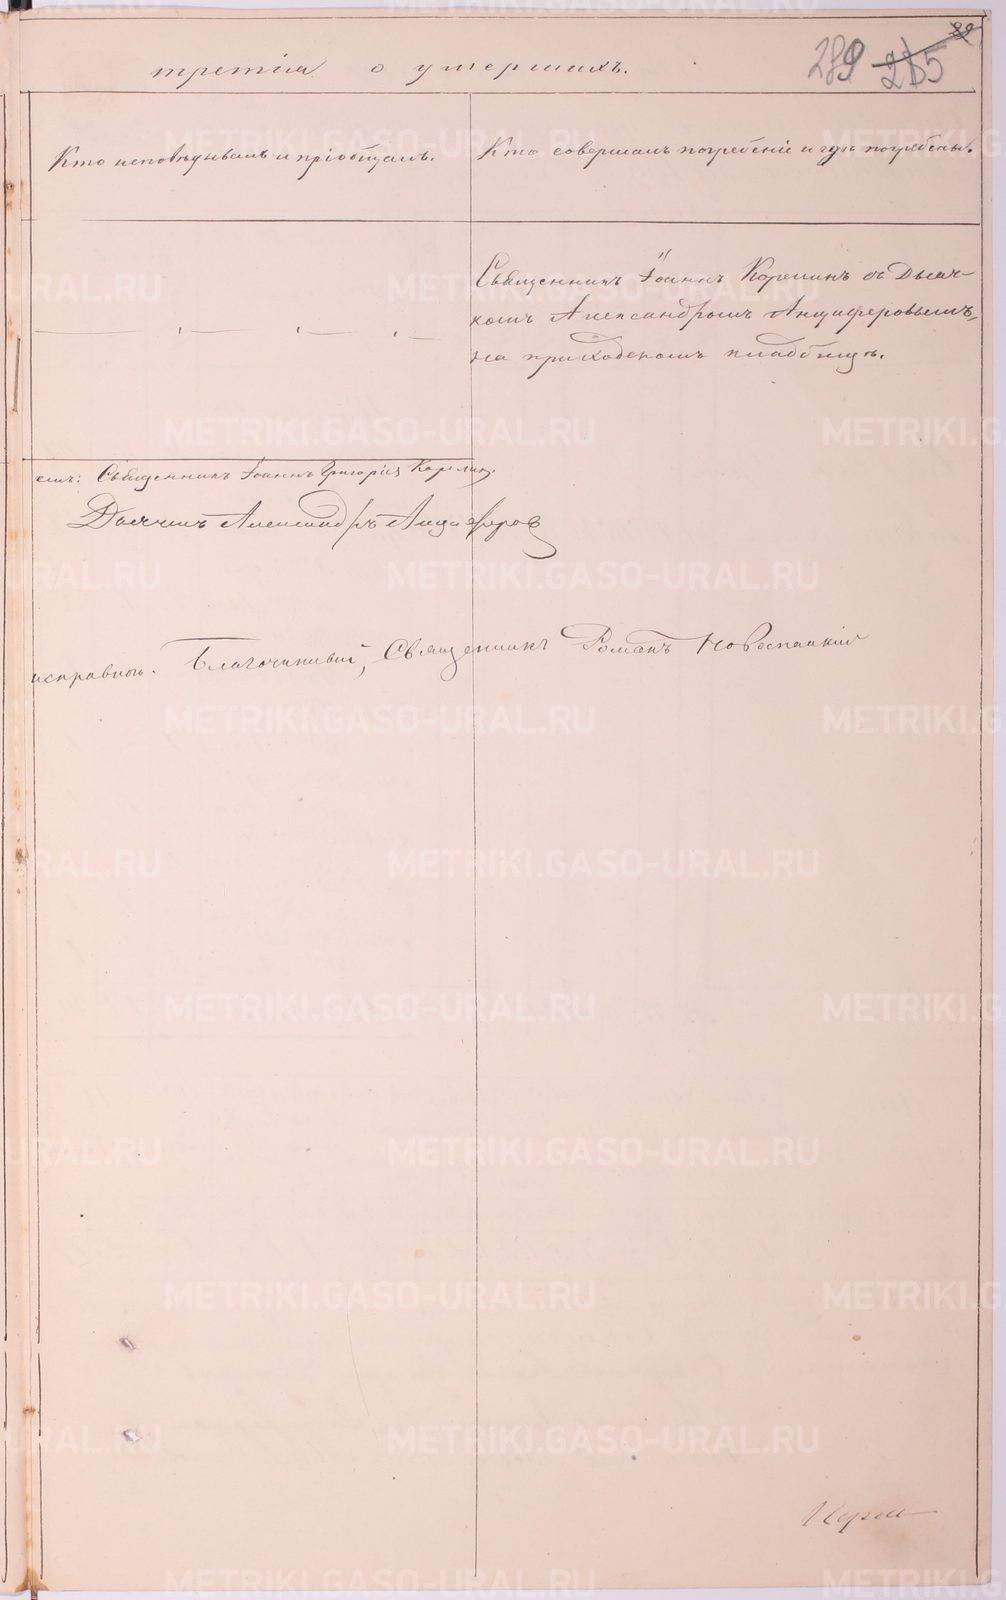 третія о умершихъ.
289 215
Кто исповѣдывалъ и пріобщалъ.
Кто совершалъ погребеніе и гдѣ погребены.
Священникъ Іоаннъ Корелинъ съ Дьяч-
комъ Александромъ Анциферовымъ,
на приходскомъ кладбищѣ.
емъ: Священникъ Іоаннъ Григорьевъ Корелинъ.
Дьячекъ Александръ Анциферов
исправно. Благочинный, Священникъ Романъ Новоспаский
METRIKI.GASO-URAL.RU